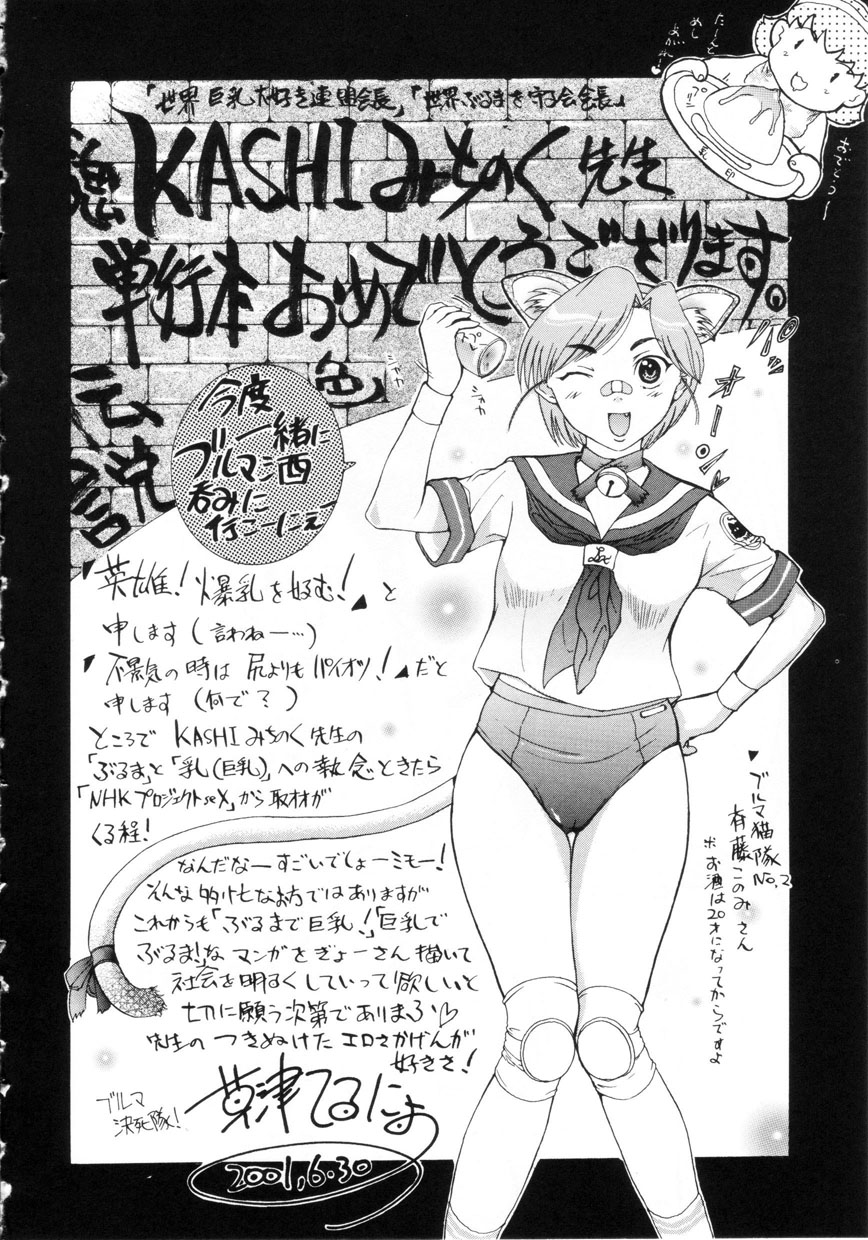 「世界巨乳大好き連盟会長」「世界ぶるまを守る会会長」
KASHIみちのく先生
単行本おめでとうございます。
伝説
色
今度
一緒に
ブルマ酒
呑みに
行こーにぇー
たーんと
めし
あがれ
おめでとっー
乳
印
シャカ
シャカ
オーン
「英雄！爆乳を好む！」と
申します(言わねー…)
「不景気の時は尻よりもパイオツ！」だと
申します(何で？)
ところでKASHIみちのく先生の
「ぶるま」と「乳(巨乳)」への執念ときたら
「NHKプロジェクトseX」から取材が
くる程！
なんだなーすごいでしょーミモー！
そんな多忙なお方ではありますが
これからも「ぶるまで巨乳！」「巨乳で
ぶるま！」なマンガをぎょーさん描いて
社会を明るくしていって欲しいと
切に願う次第でありまふ♡
先生のつきぬけたエロさかげんが
好きさ！
ブルマ
決死隊！
草津てるにょ
2001.6.30
ブルマ猫隊No.2
斉藤このみさん
※お酒は20才になってからですよ